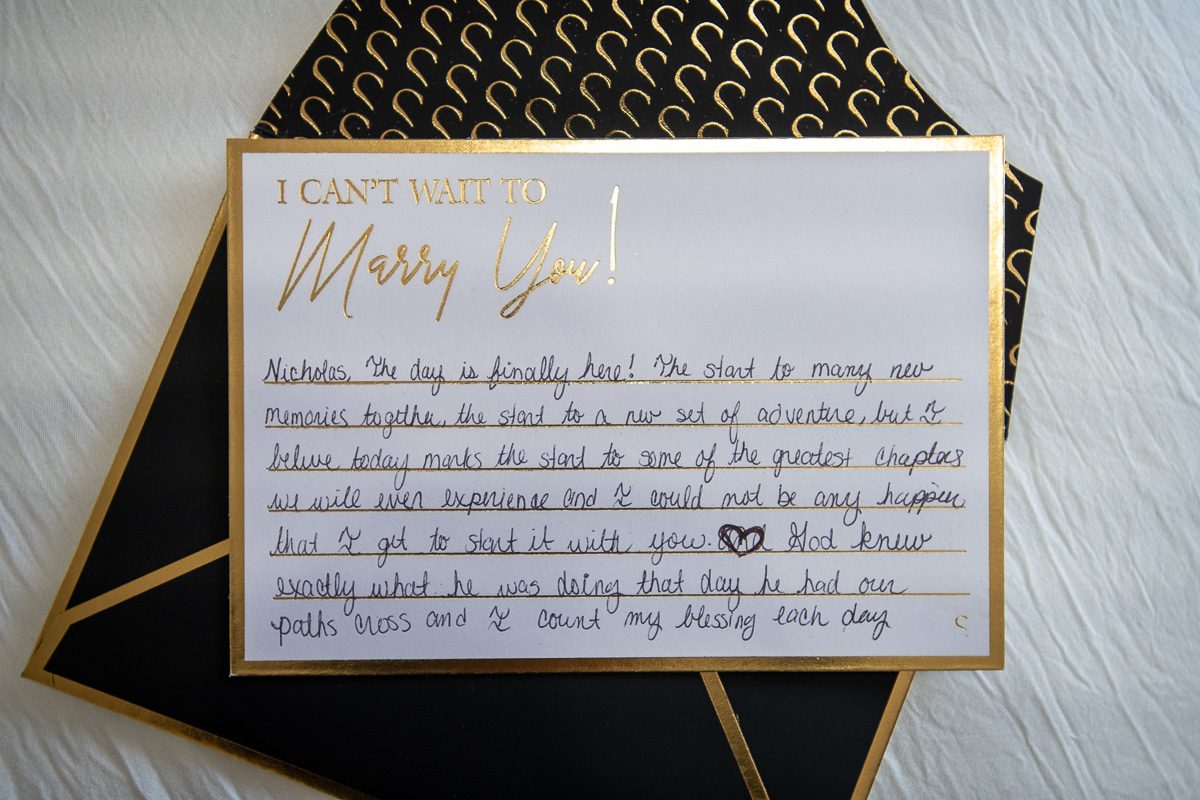 I CAN'T WAIT TO
Marry You!
Nicholas, The day is finally here! The start to many new
memories together, the start to a new set of adventure, but I
believe today marks the start to some of the greatest chapters
we will ever experience and I could not be any happier
that I get to start it with you. God knew
exactly what he was doing that day he had our
paths cross and I count my blessing each day